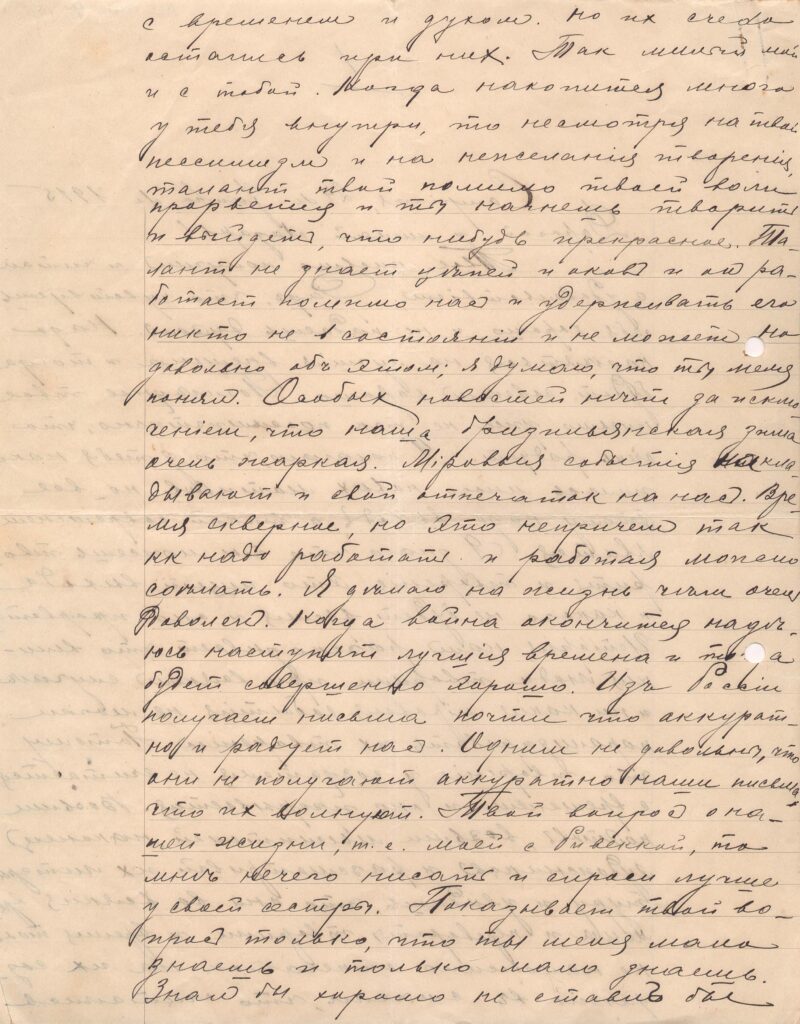 с временем и духом. Но их счеха
остались при них. Так милый мой
и с тобой. Когда накопится много
у тебя внутри, то несмотря на твой
пессимизм и на нежелания творения,
талант твой помимо твоей воли
прорвется и ты начнешь творить
и выйдетъ, что нибудь прекрасное. Та-
лант не знает цѣпей и оковъ и он ра-
ботает помимо нас и удерживать его
никто не в состоянiи и не может но
довольно объ этом; я думаю, что ты меня
понял. Особых новостей нѣт за исклю-
ченiем, что наша бразильянская зима
очень жаркая. Мiровыя событiя накла-
дывают и свой отпечаток на нас. Вре-
мя скверное, но это непричем так
кк надо работать и работая можно
Я думаю на жизнь
доволен. Когда война окончится надѣ-
юсь наступят лучшiя времена и тогда
будет совершенно хорошо. Изъ Россiи
получаем письма почти что аккурат-
но и радует нас. Одним не довольны, что
они не получают аккуратно наши письма
что их волнует. Твой вопрос о на-
шей жизни, т. е. моей с Ривеккой, то
мнѣ нечего писать и спроси лучше
у своей сестры. Показывает твой во-
прос только, что ты меня мало
знаешь и только мало знаешь.
Знал бы хорошо не ставилъ бы